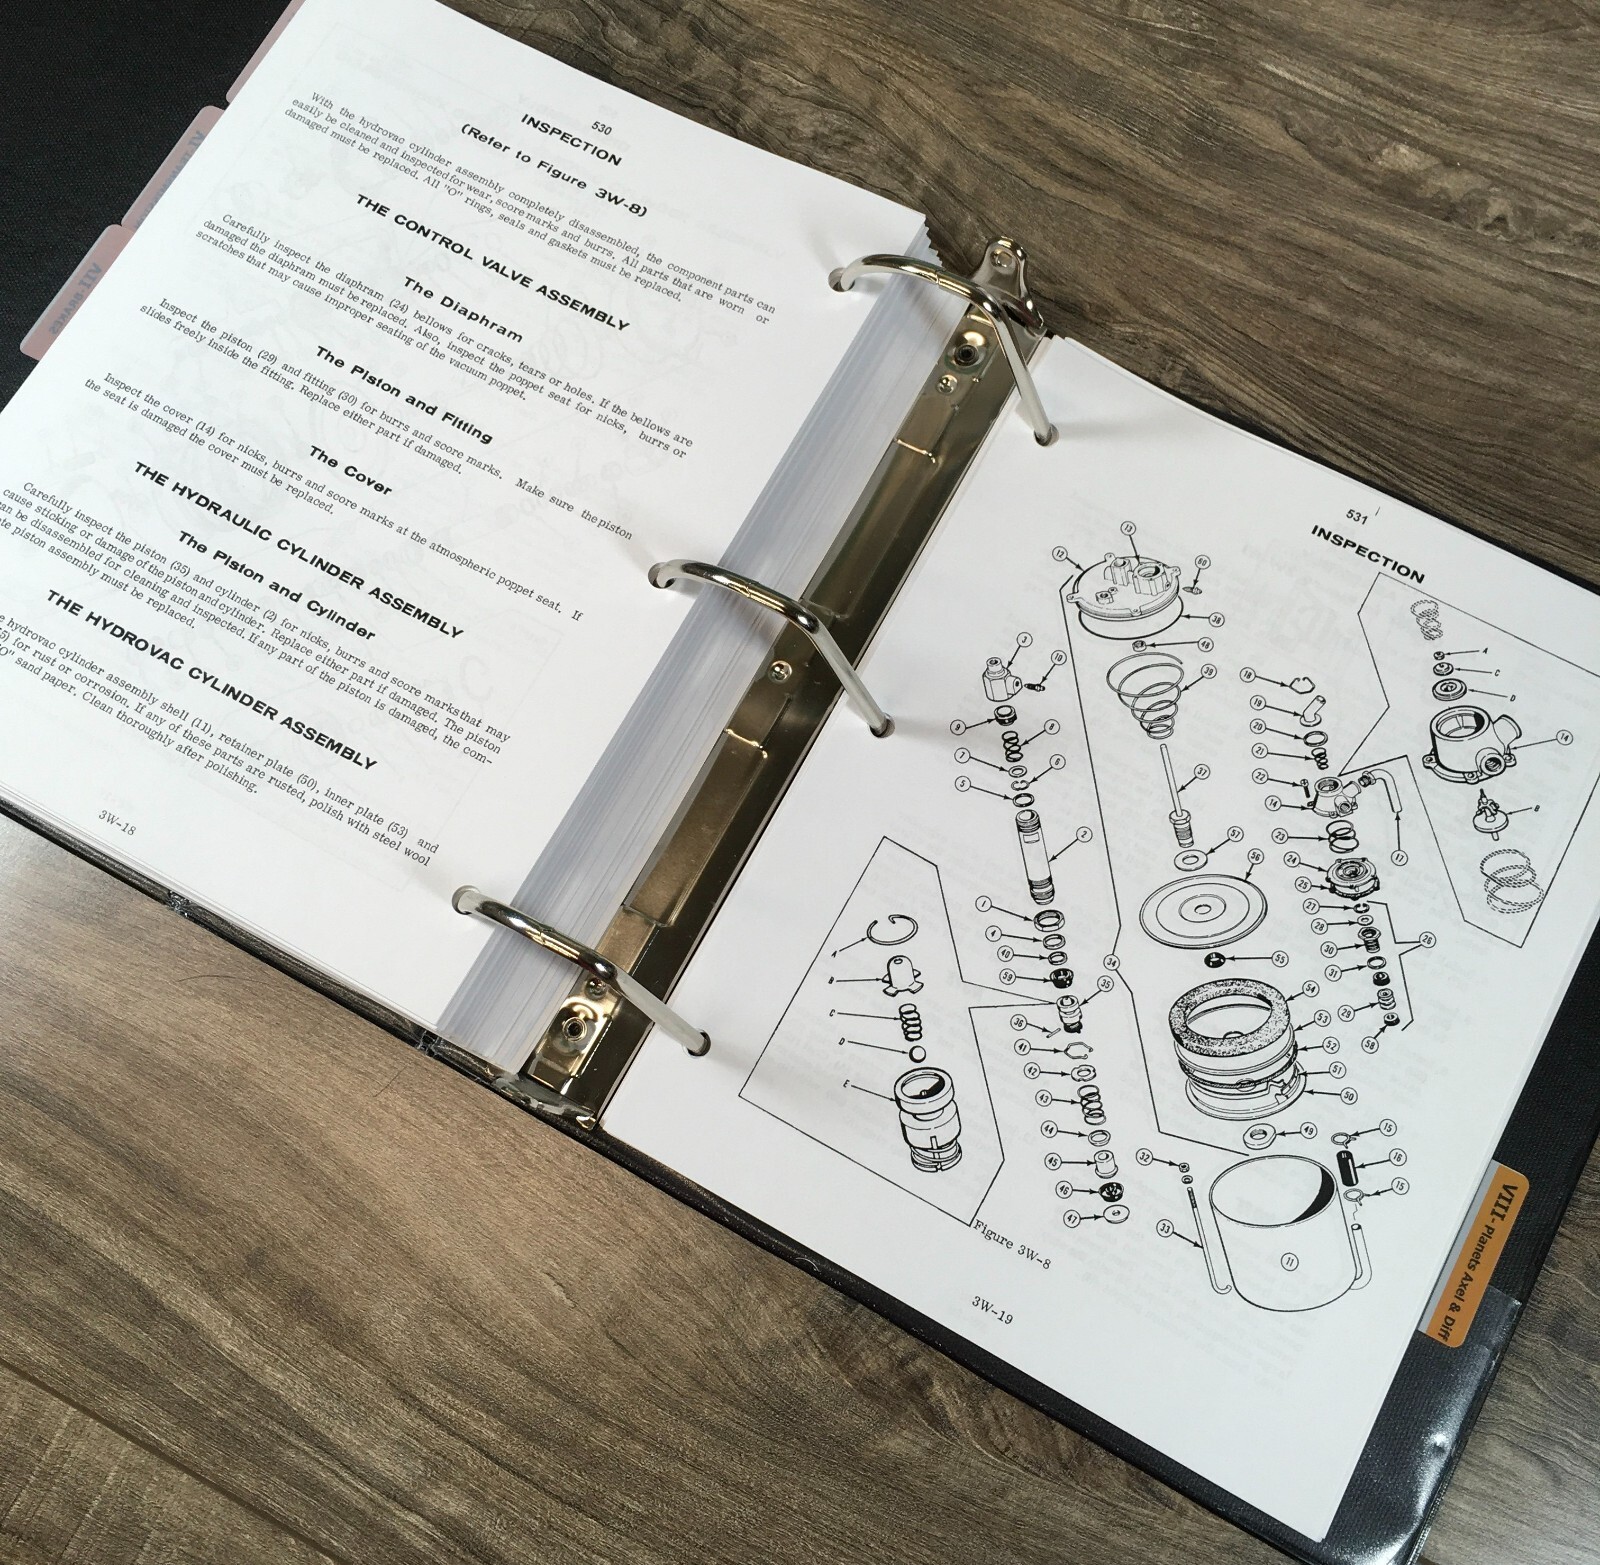 530
INSPECTION
(Refer to Figure 3W-8)
With the hydrovac cylinder assembly completely disassembled, the component parts can
easily be cleaned and inspected for wear, score marks and burrs. All parts that are worn or
damaged must be replaced. All "O" rings, seals and gaskets must be replaced.
THE CONTROL VALVE ASSEMBLY
The Diaphram
Carefully inspect the diaphram (24) bellows for cracks, tears or holes. If the bellows are
damaged the diaphram must be replaced. Also, inspect the poppet seat for nicks, burrs or
scratches that may cause improper seating of the vacuum poppet.
The Piston and Fitting
Inspect the piston (29) and fitting (30) for burrs and score marks. Make sure the piston
slides freely inside the fitting. Replace either part if damaged.
The Cover
Inspect the cover (14) for nicks, burrs and score marks at the atmospheric poppet seat. If
the seat is damaged the cover must be replaced.
THE HYDRAULIC CYLINDER ASSEMBLY
The Piston and Cylinder
Carefully inspect the piston (35) and cylinder (2) for nicks, burrs and score marks that may
cause sticking or damage of the piston and cylinder. Replace either part if damaged. The piston
can be disassembled for cleaning and inspected. If any part of the piston is damaged, the com-
piston assembly must be replaced.
THE HYDROVAC CYLINDER ASSEMBLY
hydrovac cylinder assembly shell (11), retainer plate (50), inner plate (53) and
for rust or corrosion. If any of these parts are rusted, polish with steel wool
sand paper. Clean thoroughly after polishing.
3W-18
VII BRAKES
531
INSPECTION
13
12
60
38
48
39
3
10
9
8
7
6
5
2
37
57
56
1
4
40
59
34
35
55
54
53
52
51
50
49
36
41
42
43
44
45
46
47
32
33
15
16
15
11
18
19
20
21
22
14
17
23
24
25
27
28
30
26
31
29
58
A
C
D
14
B
A
B
C
D
E
Figure 3W-8
3W-19
VIII- Planets Axel & Diff